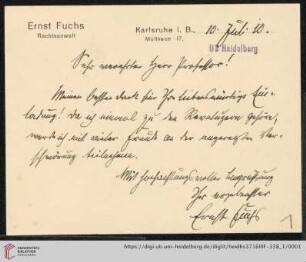 Ernst Fuchs
Rechtsanwalt
Karlsruhe i. B., 10. Juli 10.
Moltkestr. 17.
UB Heidelberg
Sehr verehrter Herr Professor!
Meinen besten Dank für Ihr liebenswürdige Ein-
ladung! Da ich einmal zu den Revolutionären gehöre,
werde ich mit vieler Freude an der angeregten Ver-
schwörung teilnehmen.
Mit hochachtungsvoller Begrüßung
Ihr ergebenster
Ernst Fuchs
UNIVERSITÄTS-
BIBLIOTHEK
HEIDELBERG
https://digi.ub.uni-heidelberg.de/diglit/heidhs3716IIIF-338_1/0001